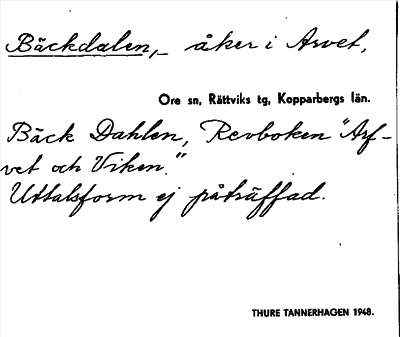 Bäckdalen, – åker i Arvet,
Ore sn, Rättviks tg, Kopparbergs län.
Bäck Dahlen, Revboken "Arf-
vet och Viken."
Uttalsform ej påträffad.
THURE TANNERHAGEN 1948.